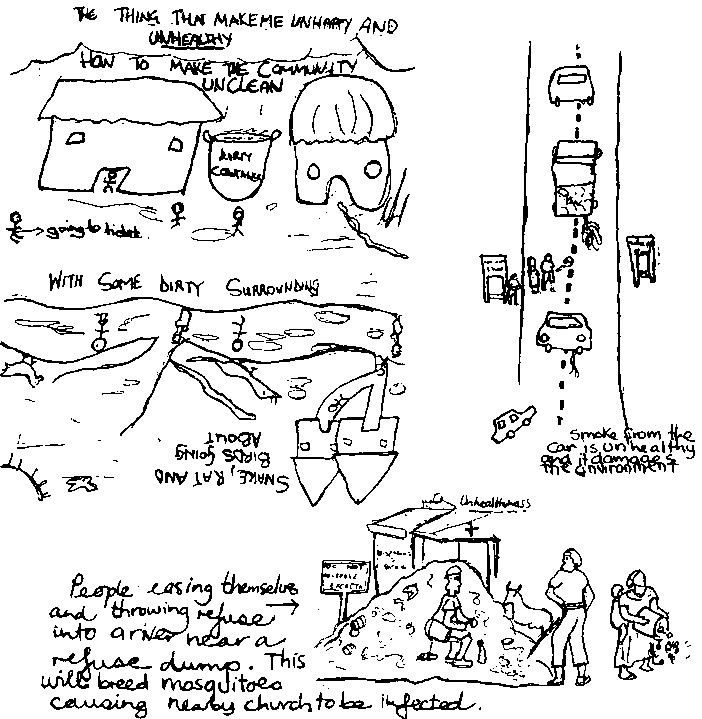 THE THING THAT MAKE ME UNHAPPY AND
UNHEALTHY
HOW TO MAKE THE COMMUNITY
UNCLEAN
DIRTY
CONTAINER
going to toilet.
WITH SOME DIRTY SURROUNDING
SNAKE, RAT AND
BIRDS GOING
ABOUT
Smoke from the
car is unhealthy
and it damages
the environment
Unhealthiness
People easing themselves
and throwing refuse
into a river near a
refuse dump. This
will breed mosquitoes
causing nearby church to be infected.